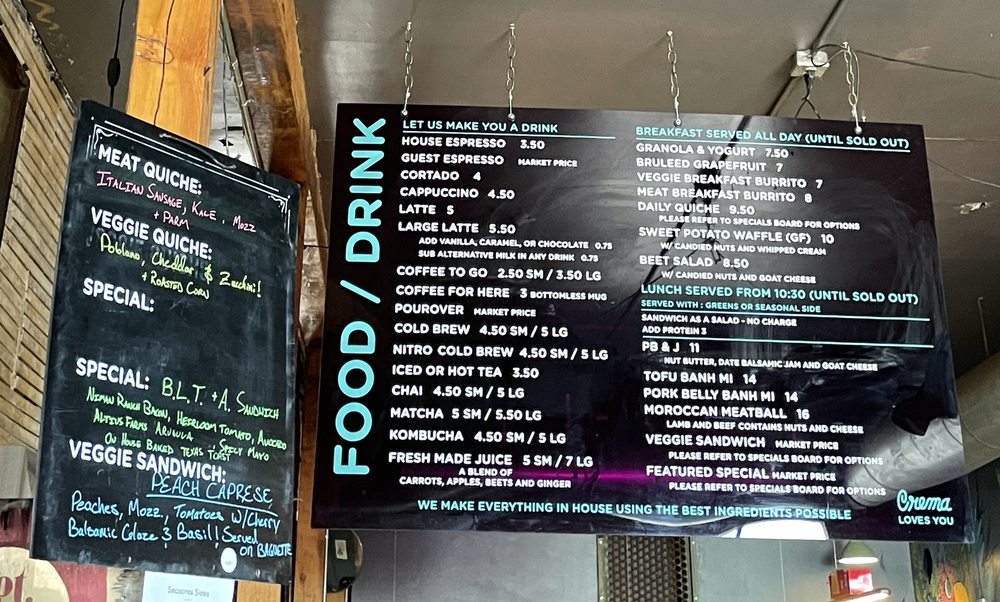 MEAT QUICHE:
ITALIAN SAUSAGE, KALE, MOZZ
+ PARM
VEGGIE QUICHE:
Poblano, Cheddar & Zucchini!
+ ROASTED CORN
SPECIAL:
SPECIAL: B.L.T. + A. SANDWICH
NIMAN RANCH BACON, HEIRLOOM TOMATO, AVOCADO
ALTIUS FARMS ARUGULA SPICY MAYO
ON HOUSE BAKED TEXAS TOAST
VEGGIE SANDWICH:
PEACH CAPRESE
Peaches, Mozz, Tomatoes w/Cherry
Balsamic Glaze & Basil! Served
on BAGUETTE
Seasonal Sides
FOOD / DRINK
LET US MAKE YOU A DRINK
HOUSE ESPRESSO 3.50
GUEST ESPRESSO MARKET PRICE
CORTADO 4
CAPPUCCINO 4.50
LATTE 5
LARGE LATTE 5.50
ADD VANILLA, CARAMEL, OR CHOCOLATE 0.75
SUB ALTERNATIVE MILK IN ANY DRINK 0.75
COFFEE TO GO 2.50 SM / 3.50 LG
COFFEE FOR HERE 3 BOTTOMLESS MUG
POUROVER MARKET PRICE
COLD BREW 4.50 SM / 5 LG
NITRO COLD BREW 4.50 SM / 5 LG
ICED OR HOT TEA 3.50
CHAI 4.50 SM / 5 LG
MATCHA 5 SM / 5.50 LG
KOMBUCHA 4.50 SM / 5 LG
FRESH MADE JUICE 5 SM / 7 LG
A BLEND OF
CARROTS, APPLES, BEETS AND GINGER
BREAKFAST SERVED ALL DAY (UNTIL SOLD OUT)
GRANOLA & YOGURT 7.50
BRULEED GRAPEFRUIT 7
VEGGIE BREAKFAST BURRITO 7
MEAT BREAKFAST BURRITO 8
DAILY QUICHE 9.50
PLEASE REFER TO SPECIALS BOARD FOR OPTIONS
SWEET POTATO WAFFLE (GF) 10
W/ CANDIED NUTS AND WHIPPED CREAM
BEET SALAD 8.50
W/ CANDIED NUTS AND GOAT CHEESE
LUNCH SERVED FROM 10:30 (UNTIL SOLD OUT)
SERVED WITH : GREENS OR SEASONAL SIDE
SANDWICH AS A SALAD - NO CHARGE
ADD PROTEIN 3
PB & J 11
NUT BUTTER, DATE BALSAMIC JAM AND GOAT CHEESE
TOFU BANH MI 14
PORK BELLY BANH MI 14
MOROCCAN MEATBALL 16
LAMB AND BEEF CONTAINS NUTS AND CHEESE
VEGGIE SANDWICH MARKET PRICE
PLEASE REFER TO SPECIALS BOARD FOR OPTIONS
FEATURED SPECIAL MARKET PRICE
PLEASE REFER TO SPECIALS BOARD FOR OPTIONS
WE MAKE EVERYTHING IN HOUSE USING THE BEST INGREDIENTS POSSIBLE
Crema
LOVES YOU